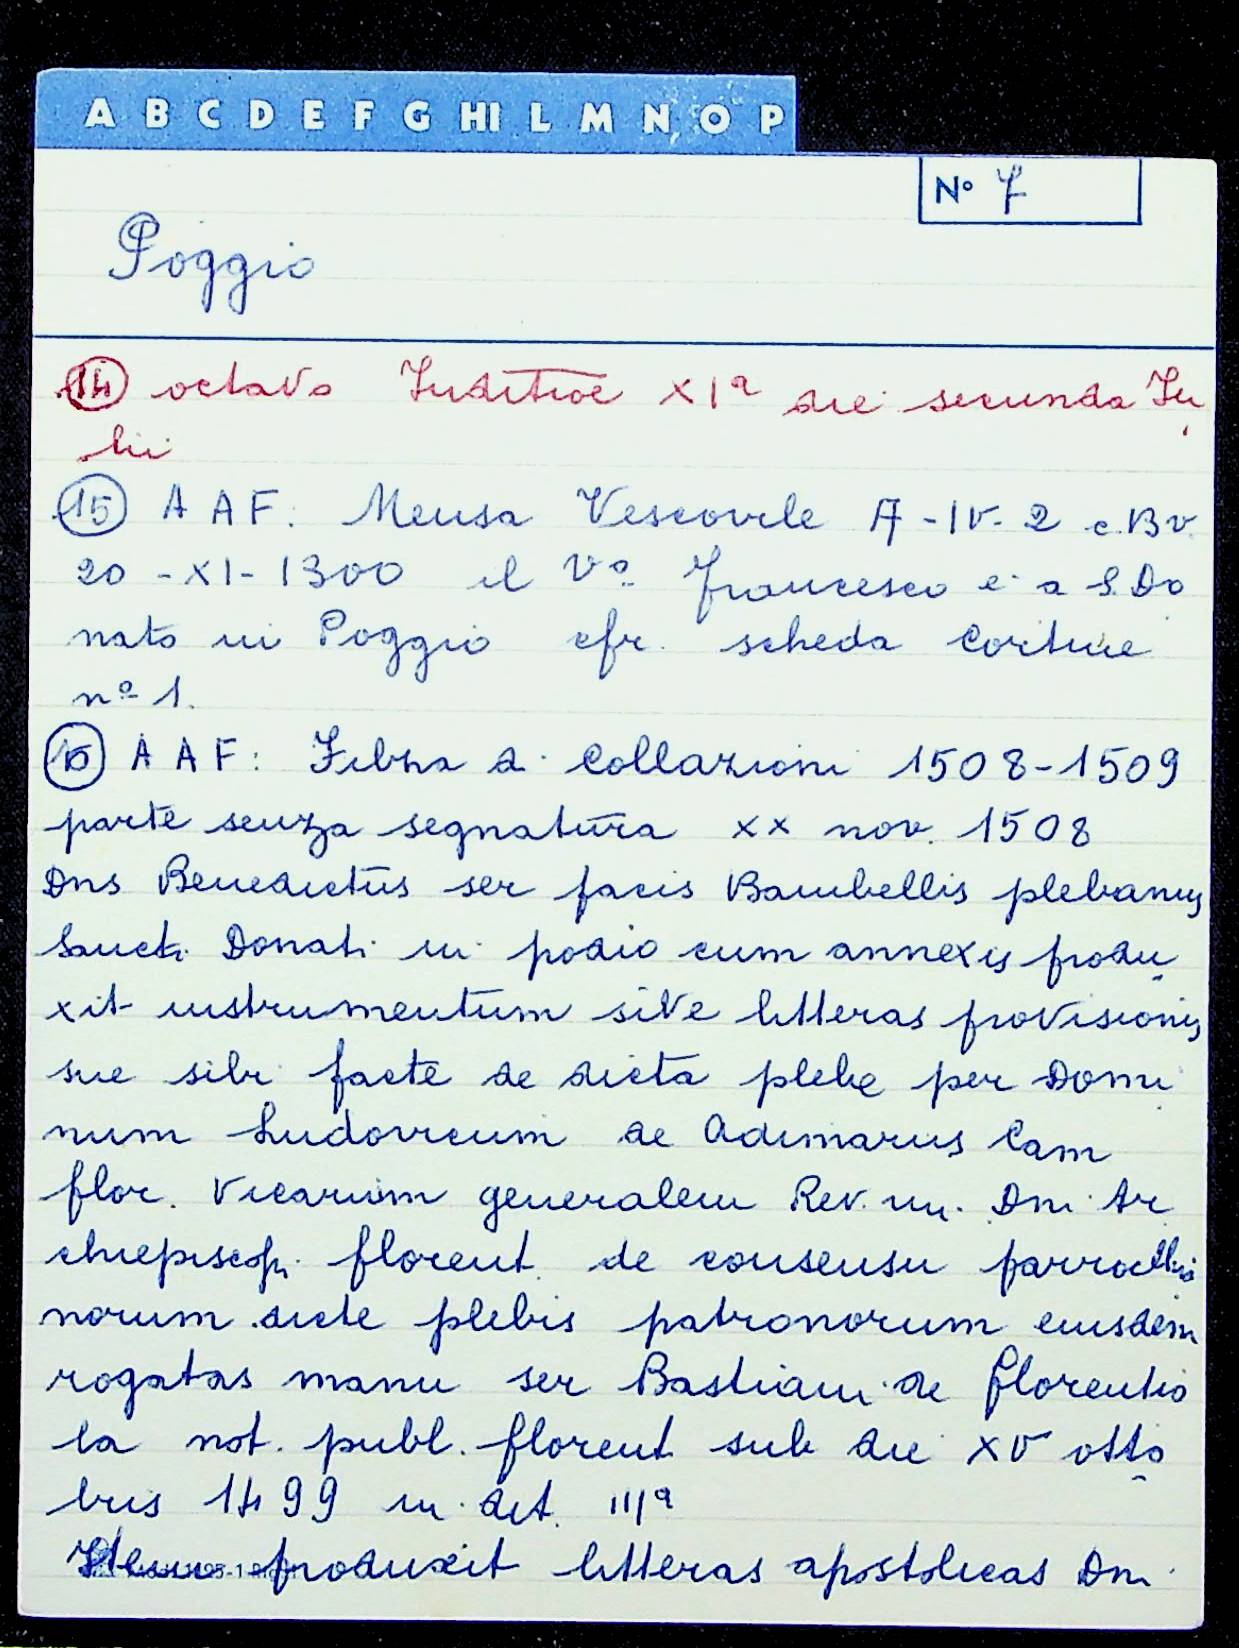 A B C D E F G HI L M N O P
N° 7
Poggio
14 octavo Inditioe XIª die secunda Ju
lii
15 A A F. Mensa Vescovile A-IV-2 c.13v.
20-XI-1300 il Vº Francesco è a S. Do
nato in Poggio cfr. scheda Cortine
nº 1.
16 A A F: Filza di Collazioni 1508-1509
parte senza segnatura xx nov. 1508
Dns Benedictus ser facis Bambellis plebanus
Sancti Donati in podio cum annexis produ
xit instrumentum sive litteras provisionis
sue sibi facte de dicta plebe per Domi
num Ludovicum de Adimarus Cam
flor. Vicarium generalem Rev.mi. Dni Ar
chiepiscopi florent. de consensu parrochia
norum dicte plebis patronorum eiusdem
rogatas manu ser Bastiani de florentio
la not. publ. florent sub die XV otto
bris 1499 in dit. IIIª
Item produxit litteras apostolicas Dni